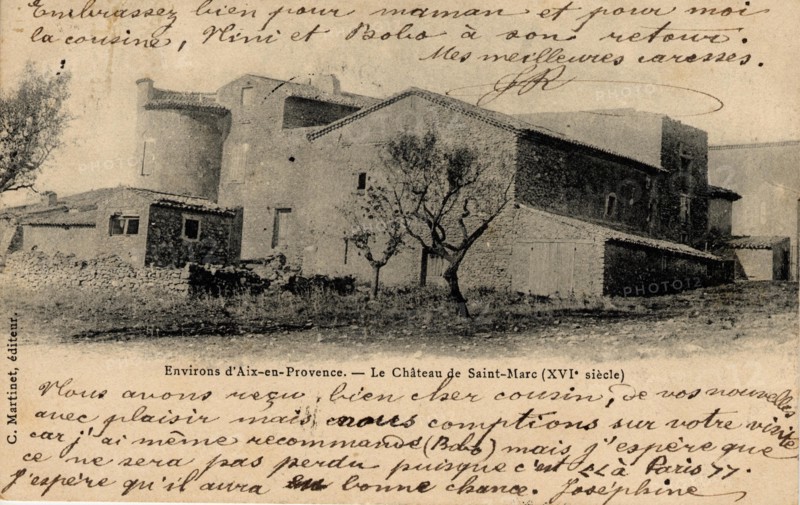 Embrassez bien pour maman et pour moi
la cousine, Nini et Bobo à son retour.
Mes meilleures caresses.
PHOTO12
Environs d'Aix-en-Provence. — Le Château de Saint-Marc (XVIe siècle)
C. Martinet, éditeur.
Nous avons reçu, bien cher cousin, de vos nouvelles
avec plaisir mais nous comptions sur votre visite
car j'ai même recommandé (Bobo) mais j'espère que
ce ne sera pas perdu puisque c'est à Paris
J'espère qu'il aura bonne chance. Joséphine